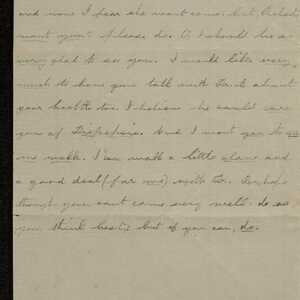 and now I fear she wont come. but
wont you? Please do. O I should be so
very glad to see you. I would like very
much to have you talk with Dr. about
your health too. I believe he could cure
you of Dispepsia. And I want you to see
me walk. I can walk a little alone and
a good deal (for me) with Dr. Perhaps
though you cant come very well. do as
you think best; but if you can, do.